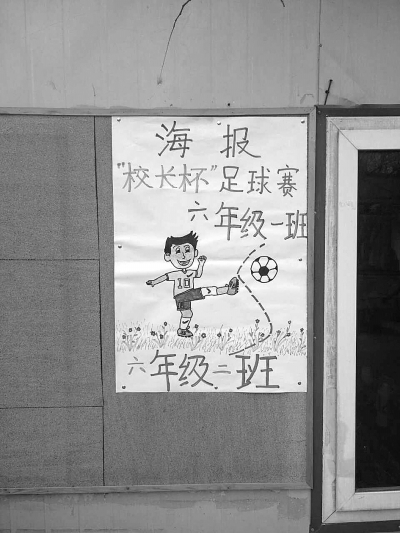 海报
"校长杯"足球赛
六年级一班
10
六年级二班